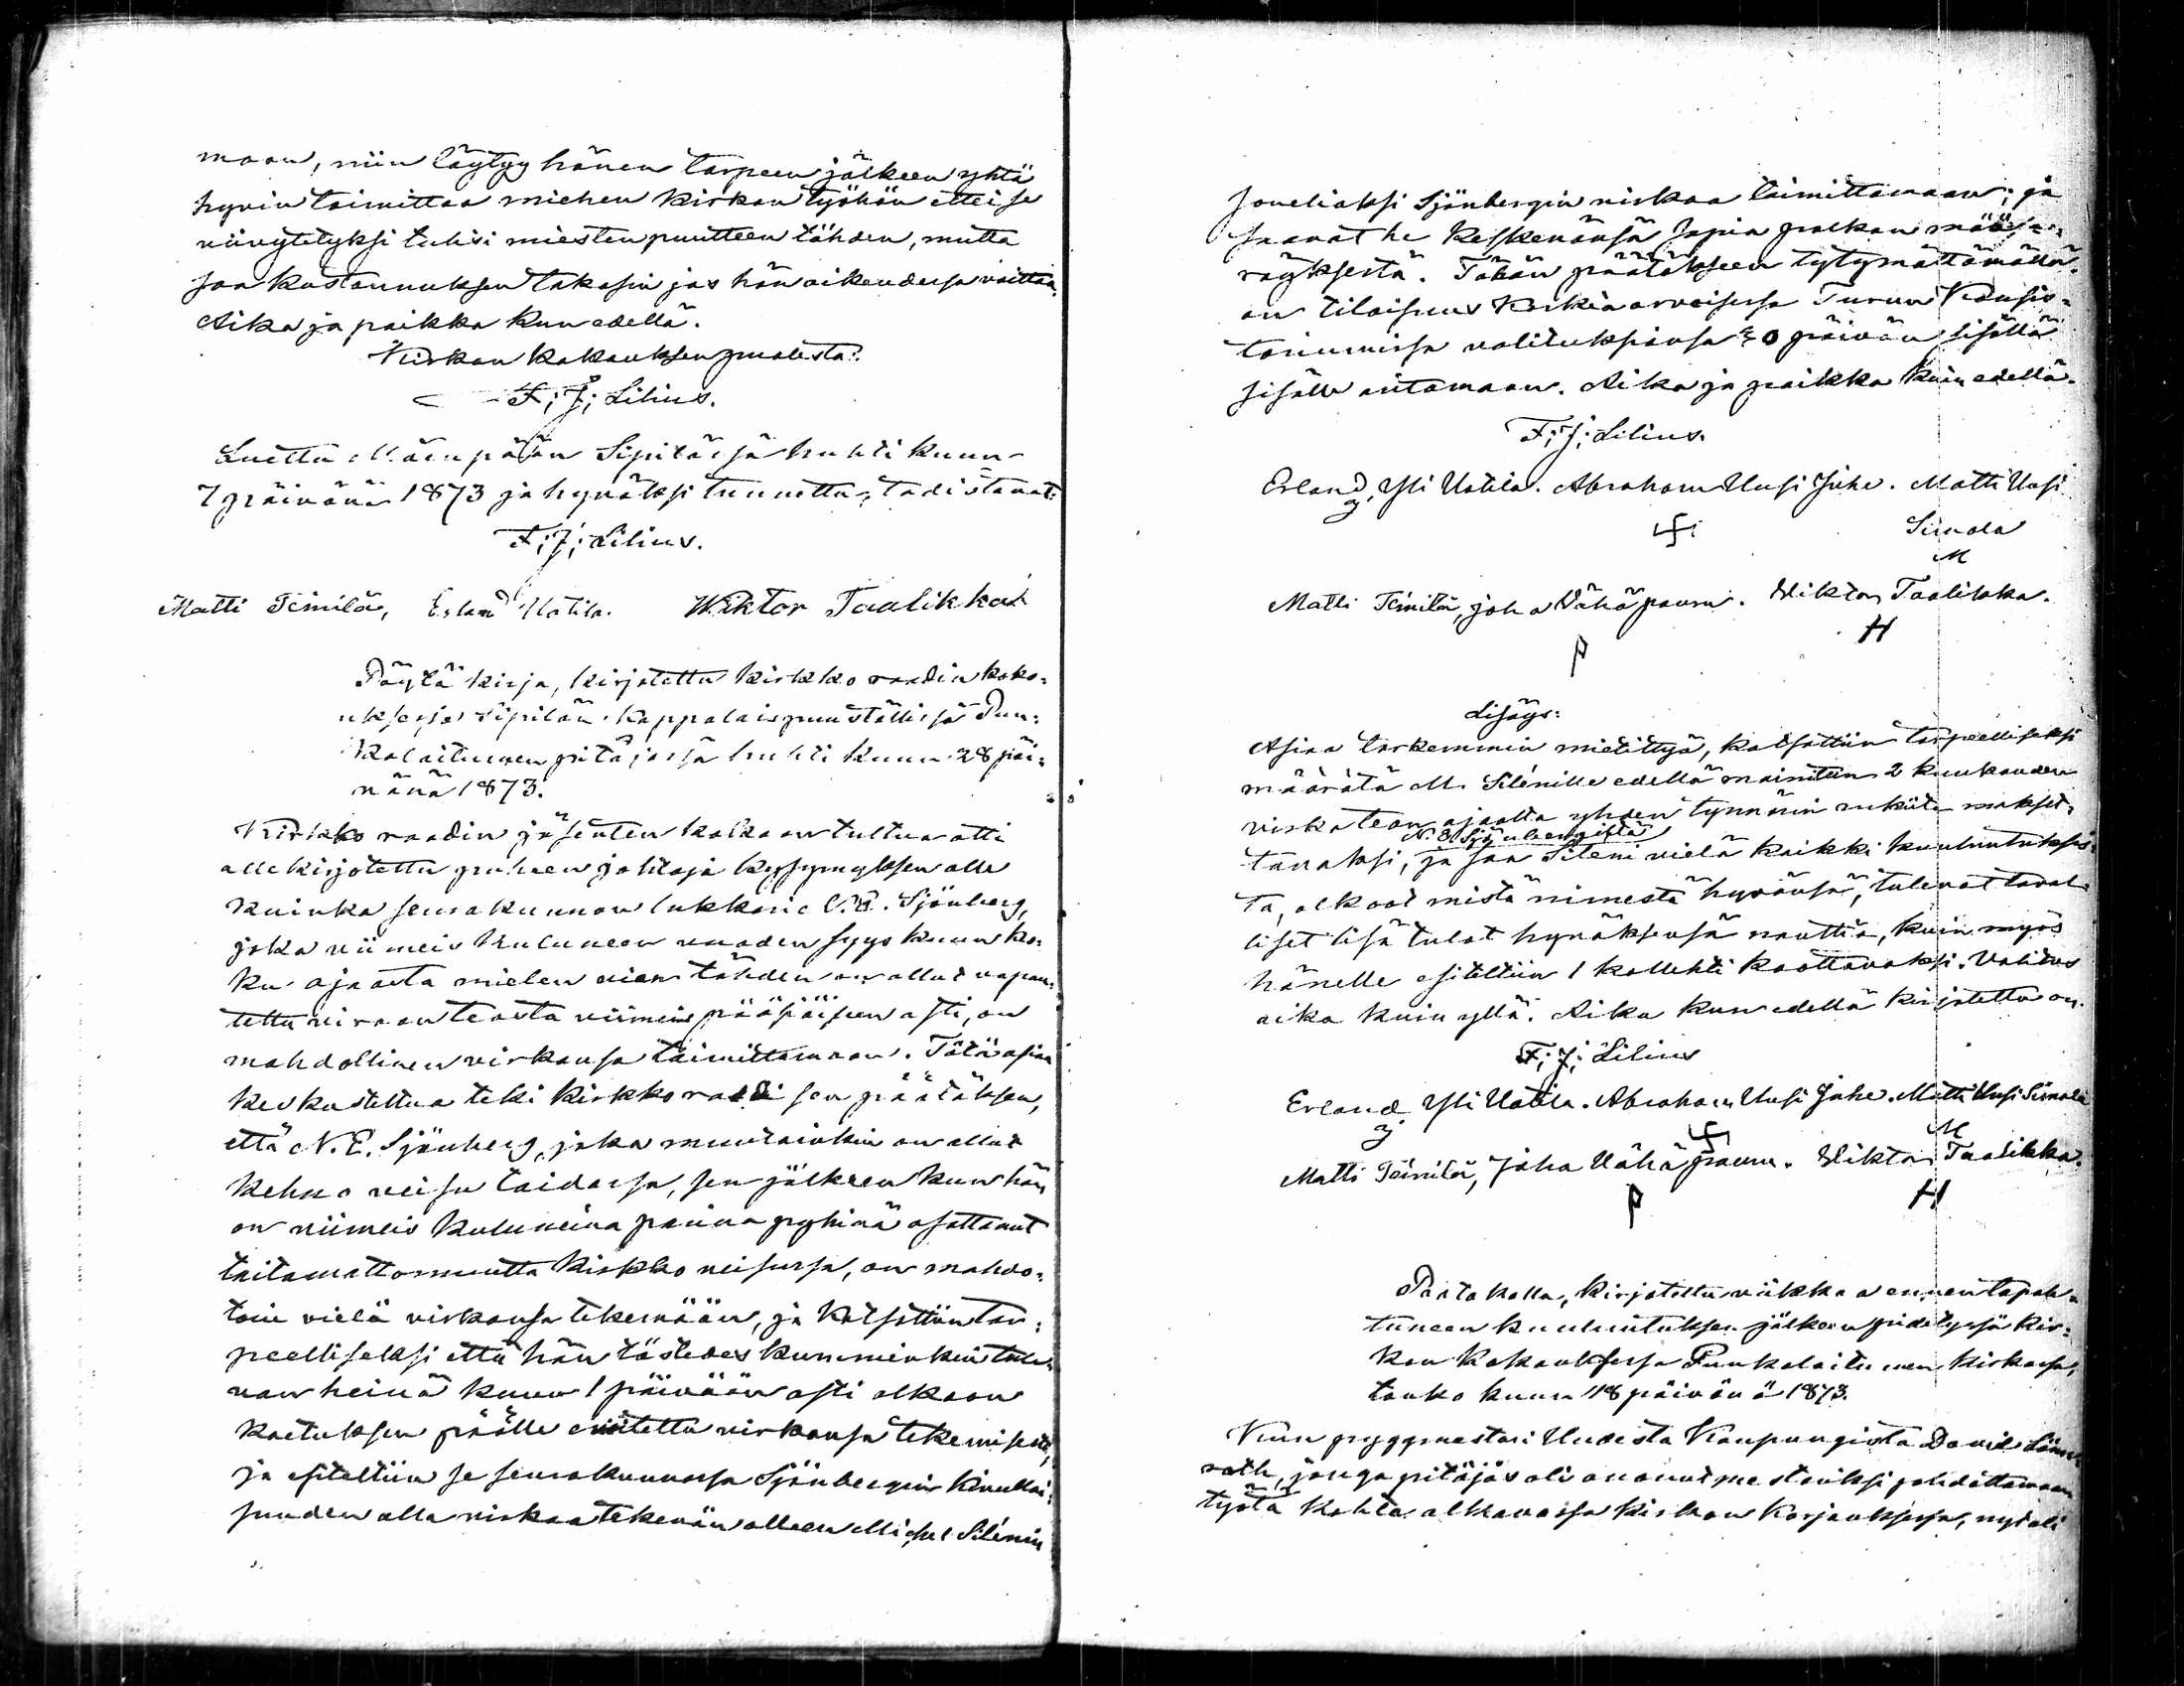 maan, niin löytyy hänen tarpeen jälkeen yhtä
hyvin toimittaa miehen kirkon työhön ettei se
viivytetyksi tulisi miesten puutteen tähden, mutta
saa kustannuksen takasin jos hän oikeudessa voittaa.
Aika ja paikka kun edellä.
Kirkon kokouksen puolesta:
F; J; Lilius.
Luettu Mäenpään Sipilässä huhti kuun
7 päivänä 1873 ja hyväksi tunnettu; todistavat:
F; J; Lilius.
Matti Teinilä, Erland Uotila. Wiktor Taalikka
Pöytä kirja, kirjotettu kirkko raadin koko-
uksessa Sipilän kappalaispuuställissä Pun-
kalaitumen pitäjässä huhti kuun 28 päi-
vänä 1873.
Kirkko raadin jäsenten kokoon tultua otti
alle kirjotettu puheen johtaja kysymyksen alle
kuinka seurakunnan lukkari N. E. Sjönberg,
joka viimeis kuluneen vuoden syys kuun ko-
ku ajasta mielen vian tähden on ollut vapau-
tettu viran teosta viimeis pääsiäiseen asti, on
mahdollinen virkansa toimittamaan. Tätä asiaa
keskusteltua teki kirkko raadi sen päätöksen,
että N. E. Sjönberg, joka muutoinkin on ollut
kehno veisu taidossa, sen jälkeen kun hän
on viimeis kuluneina pyhinä osottanut
taitamattomuutta kirkko veisussa, on mahdo-
toin vielä virkansa tekemään, ja katsottiin tar-
peelliseksi että hän tästedes kumminkin tule-
van heinä kuun 1 päivään asti olkoon
koetuksen päälle eroitettu virkansa tekemisestä,
ja esiteltiin se seurakunnassa Sjönbergin kivulloi-
suuden alla virkaa tekevän olleen Michel Silénin
soveliaksi Sjönbergin virkaa toimittamaan; ja
saavat he keskenänsä sopia palkan mää-
räyksestä. Tähän päätökseen tytymättömällä
on tilaisuus korkia arvoisessa Turun Konsis-
toriumissa valituksiansa 30 päivän sisällä
sisälle antamaan. Aika ja paikka kuin edellä.
F; J; Lilius.
Erland Yli Uotila. Abraham Uusi Juhe. Matti Uusi
Simola
M
Matti Teinilä, Joha Vähäpaavu. Wiktor Taalikka.
P H
Lisäys:
Asiaa tarkemmin mietittyä, katsottiin tarpeelliseksi
määrätä M. Silénille edellä mainitun 2 kuukauden
virkateon ajalta yhden tynnörin rukiita makset-
N. E. Sjönbergiltä
tavaksi, ja saa Siléni vielä kaikki kuulutuksis-
ta, olkoot mistä nimestä hyvänsä, tulevat laval-
liset lisä tulot hyväksensä nauttia, kuin myös
hänelle esiteltiin 1 kollehti koottavaksi. Valitus
aika kuin yllä. Aika kun edellä kirjotettu on.
F; J; Lilius
Erland Yli Uotila. Abraham Uusi Juhe. Matti Uusi Simola
M
Matti Teinilä, Joha Vähäpaavu. Wiktor Taalikka.
P H
Poytäkalla, kirjotettu viikkoa ennen tapah-
tuneen kuulutuksen jälkeen pidetyssä kir-
kon kokouksessa Punkalaitumen kirkossa,
touko kuun 18 päivänä 1873.
Kuin pyggmestari Uudesta Kaupungista David Lönn-
roth, jonga pitäjäs oli anonut mestariksi johdattamaan
työtä kohta alkavassa kirkon korjauksessa, nyt oli